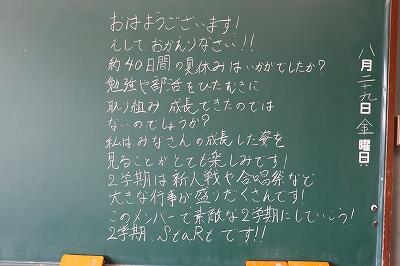 おはようございます!
そして、おかえりなさい!!
約40日間の夏休みはいかがでしたか?
勉強や部活をひたむきに
取り組み、成長できたのでは
ないのでしょうか?
私は、みなさんの成長した姿を
見ることがとても楽しみです!
2学期は新人戦や合唱祭など
大きな行事が盛りだくさんです!
このメンバーで素敵な2学期にしていこう!
2学期、StaRtです!!
八月二十九日金曜日